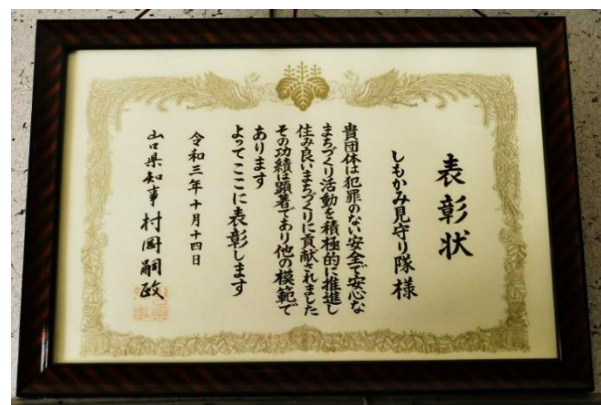 表彰状
しもかみ見守り隊様
貴団体は犯罪のない安全で安心な
まちづくり活動を積極的に推進し
住み良いまちづくりに貢献されました
その功績は顕著であり他の模範で
あります
よってここに表彰します
令和三年十月十四日
山口県知事村岡嗣政